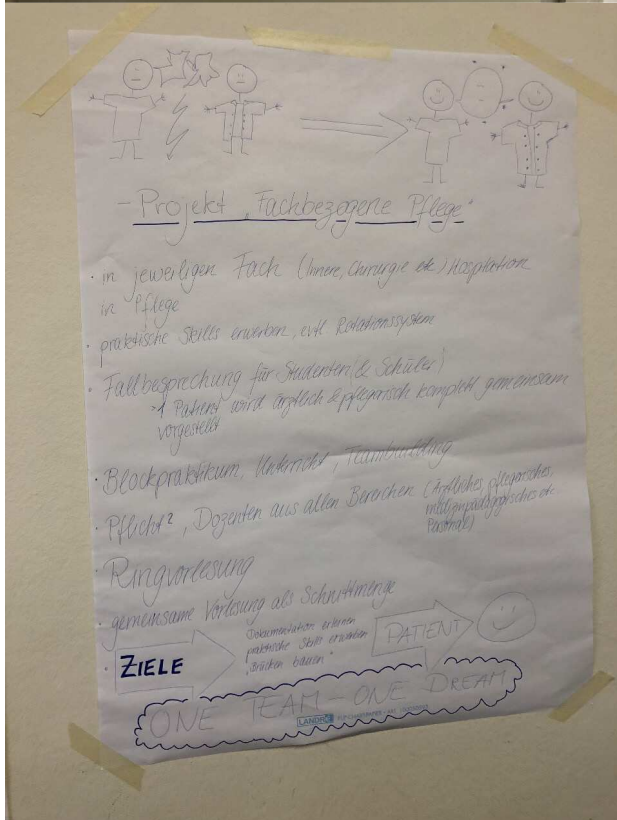 - Projekt „Fachbezogene Pflege"
· in jeweiligen Fach (Innere, Chirurgie etc) Hospitation
in Pflege
· praktische Skills erwerben, evtl Rotationssystem
· Fallbesprechung für Studenten (& Schüler)
→ 1 Patient wird ärztlich & pflegerisch komplett gemeinsam
vorgestellt
· Blockpraktikum, Unterricht, Teambuilding
· Pflicht?, Dozenten aus allen Bereichen (Ärztliches, pflegerisches,
medizinpädagogisches etc
Personal)
· Ringvorlesung
· gemeinsame Vorlesung als Schnittmenge
· ZIELE
Dokumentation erlernen
praktische Skills erwerben
„Brücken bauen"
PATIENT
ONE TEAM - ONE DREAM
LANDRÉ